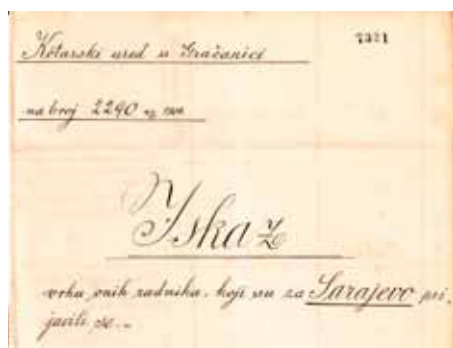 7321
Kotarski ured u Gračanici
na broj 2290
Iskaz
vrhu onih radnika, koji su za Sarajevo pri-
javili se.-